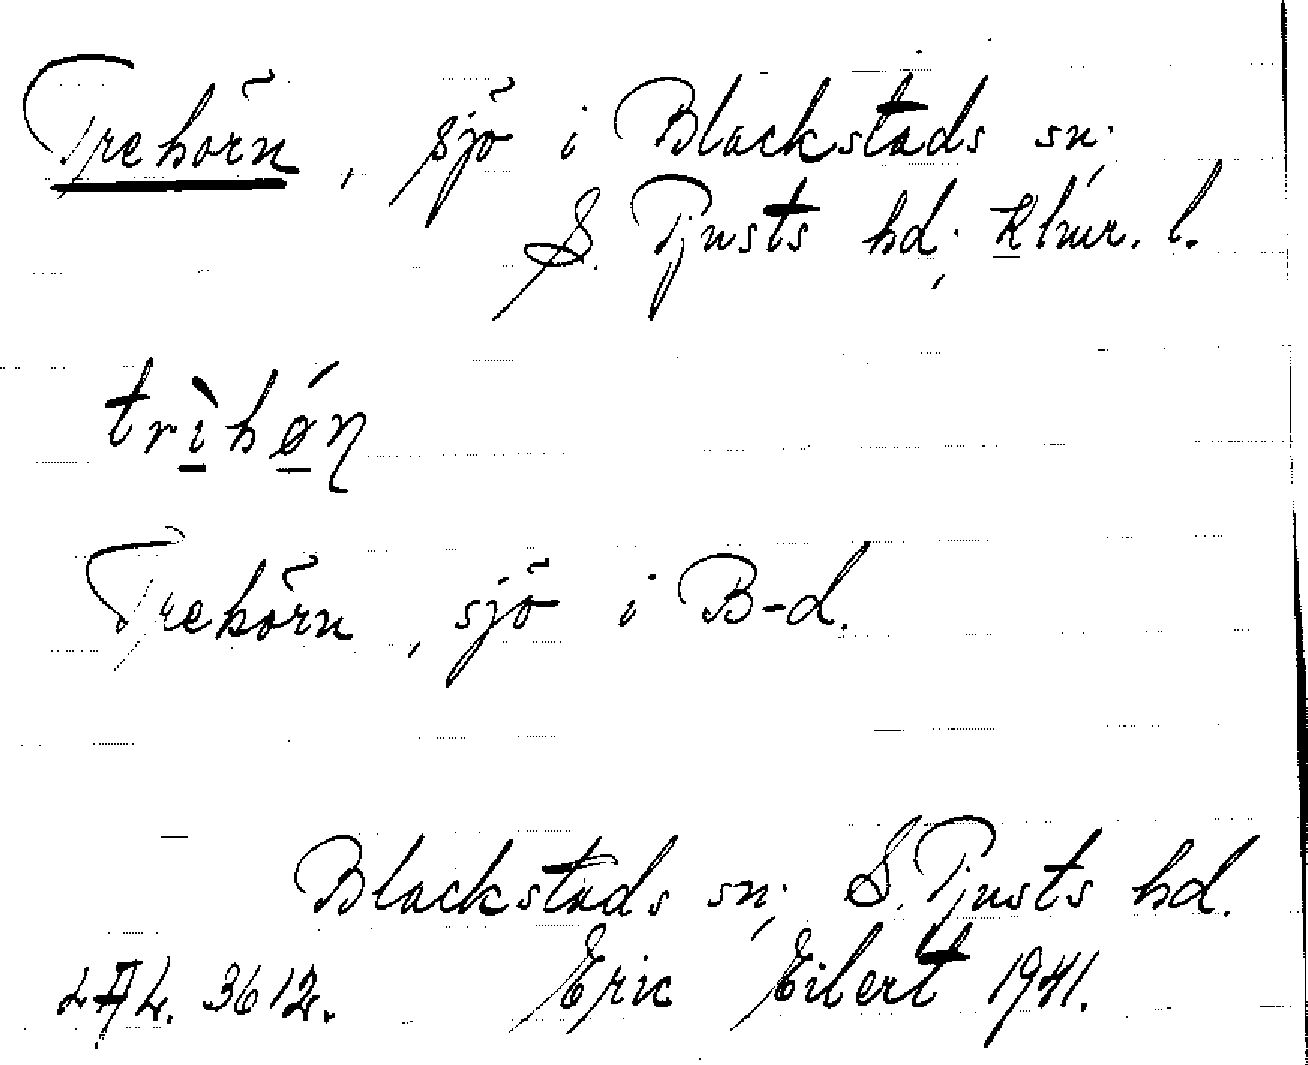 Trehörn, sjö i Blackstads sn;
S. Tjusts hd; Klmr. l.
trìhǿn
Trehörn, sjö i B-d.
Blackstads sn; S. Tjusts hd.
LAL. 3612. Eric Eilert 1941.